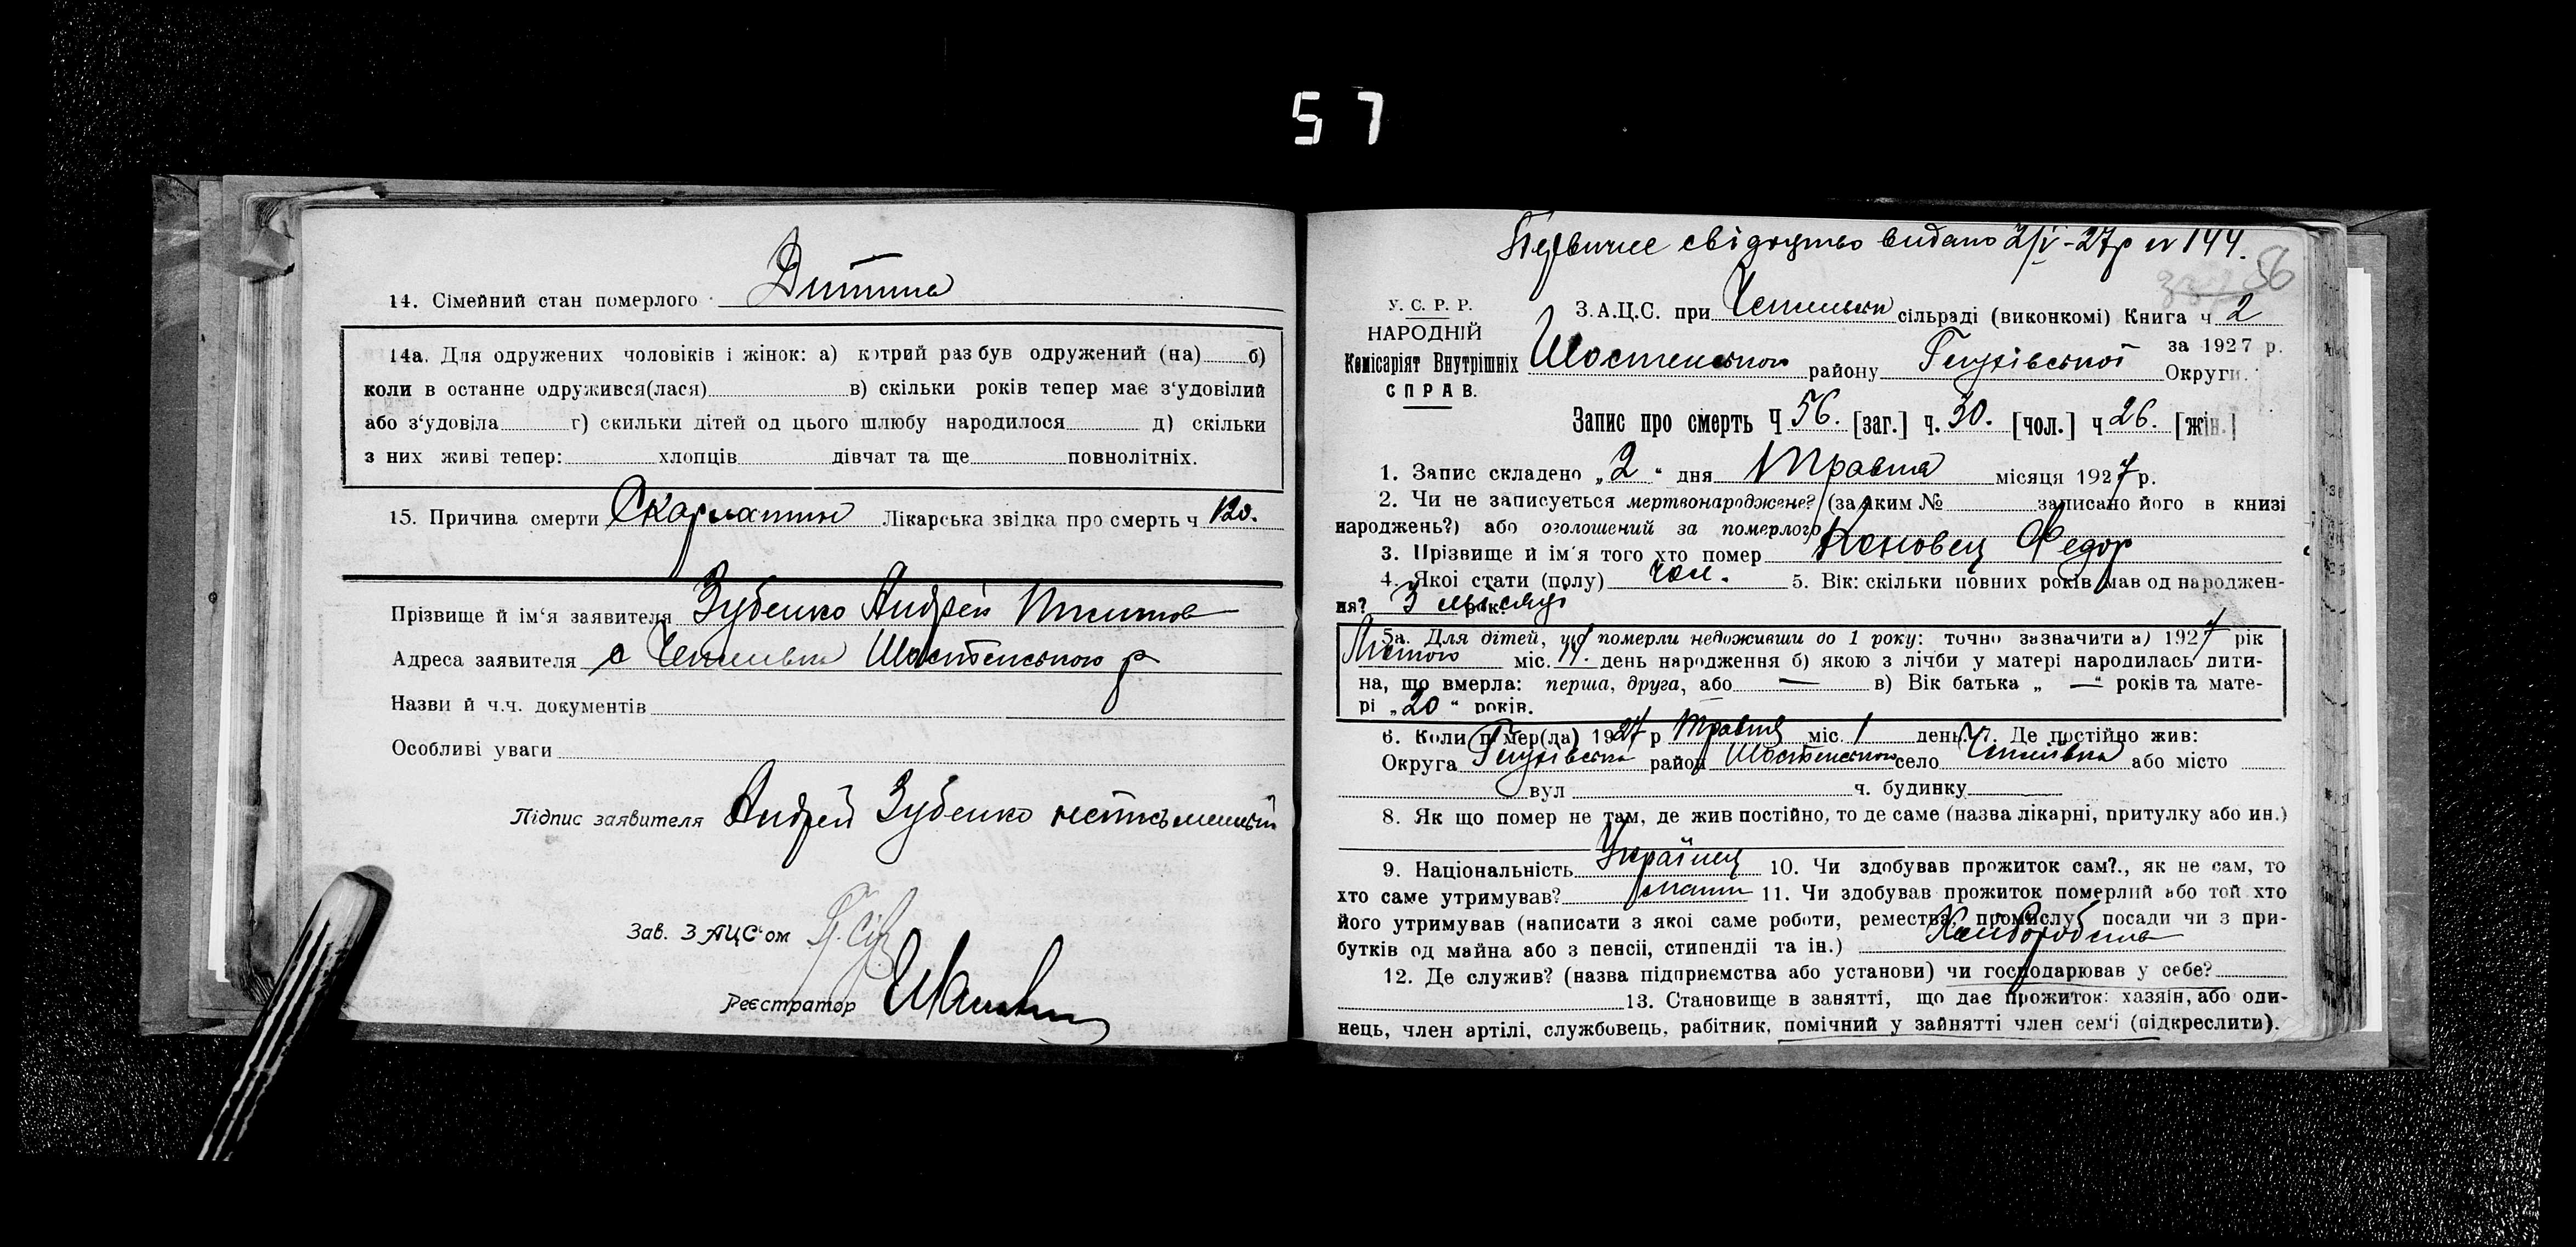 57
14. Сімейний стан померлого Дитина
14а. Для одружених чоловіків і жінок: а) котрий раз був одружений (на) б)
коли в останне одружився(лася) в) скільки років тепер має з‘удовілий
або з‘удовіла г) скильки дітей од цього шлюбу народилося д) скільки
з них живі тепер: хлопців дівчат та ще повнолітніх.
15. Причина смерти Скарлатина Лікарська звідка про смерть ч 120.
Прізвище й ім‘я заявителя Зубенко Андрей
Адреса заявителя с Чепліївка Шостенського р
Назви й ч.ч. документів
Особливі уваги
Підпис заявителя Андрей Зубенко неписьменний
Зав. ЗАЦС‘ом
Реєстратор
Первичне свідоцтво видано 2/V-27р № 144.
56
У. С. Р. Р.
НАРОДНІЙ
Комісаріят Внутрішніх
СПРАВ.
З.А.Ц.С. при сільраді (виконкомі) Книга ч 2
за 1927 р.
Шостенського району Глухівської Округи.
Запис про смерть Ч 56. [заг.] ч. 30. [чол.] ч 26. [жін.]
1. Запис складено „2“ дня Травня місяця 1927 р.
2. Чи не записується мертвонароджене? (за яким № записано його в книзі
народжень?) або оголошений за померлого
3. Прізвище й ім‘я того хто помер Коновец Федор
4. Якоі стати (полу) Чол. 5. Вік: скільки повних років мав од народжен-
ня? 3 місяці рок.
5а. Для дітей, що померли недоживши до 1 року: точно зазначити а) 1927 рік
Лютого міс. день народження б) якою з лічби у матері народилась дити-
на, що вмерла: перша, друга, або — в) Вік батька „—“ років та мате-
рі „20“ років.
6. Коли помер(ла) 1927 р Травня міс. 1 день. 7. Де постійно жив:
Округа Глухівська район Шостенського село Чепліївка або місто
вул ч. будинку
8. Як що помер не там, де жив постійно, то де саме (назва лікарні, притулку або ин.)
9. Національність Українец 10. Чи здобував прожиток сам?., як не сам, то
хто саме утримував? мати 11. Чи здобував прожиток померлий або той хто
його утримував (написати з якоі саме роботи, ремества, промислу, посади чи з при-
бутків од майна або з пенсіі, стипендіі та ін.) Хліборобство
12. Де служив? (назва підприємства або установи) чи господарював у себе?
13. Становище в занятті, що дає прожиток: хазяін, або оди-
нець, член артілі, службовець, рабітник, помічний у зайнятті член сем‘і (підкреслити).